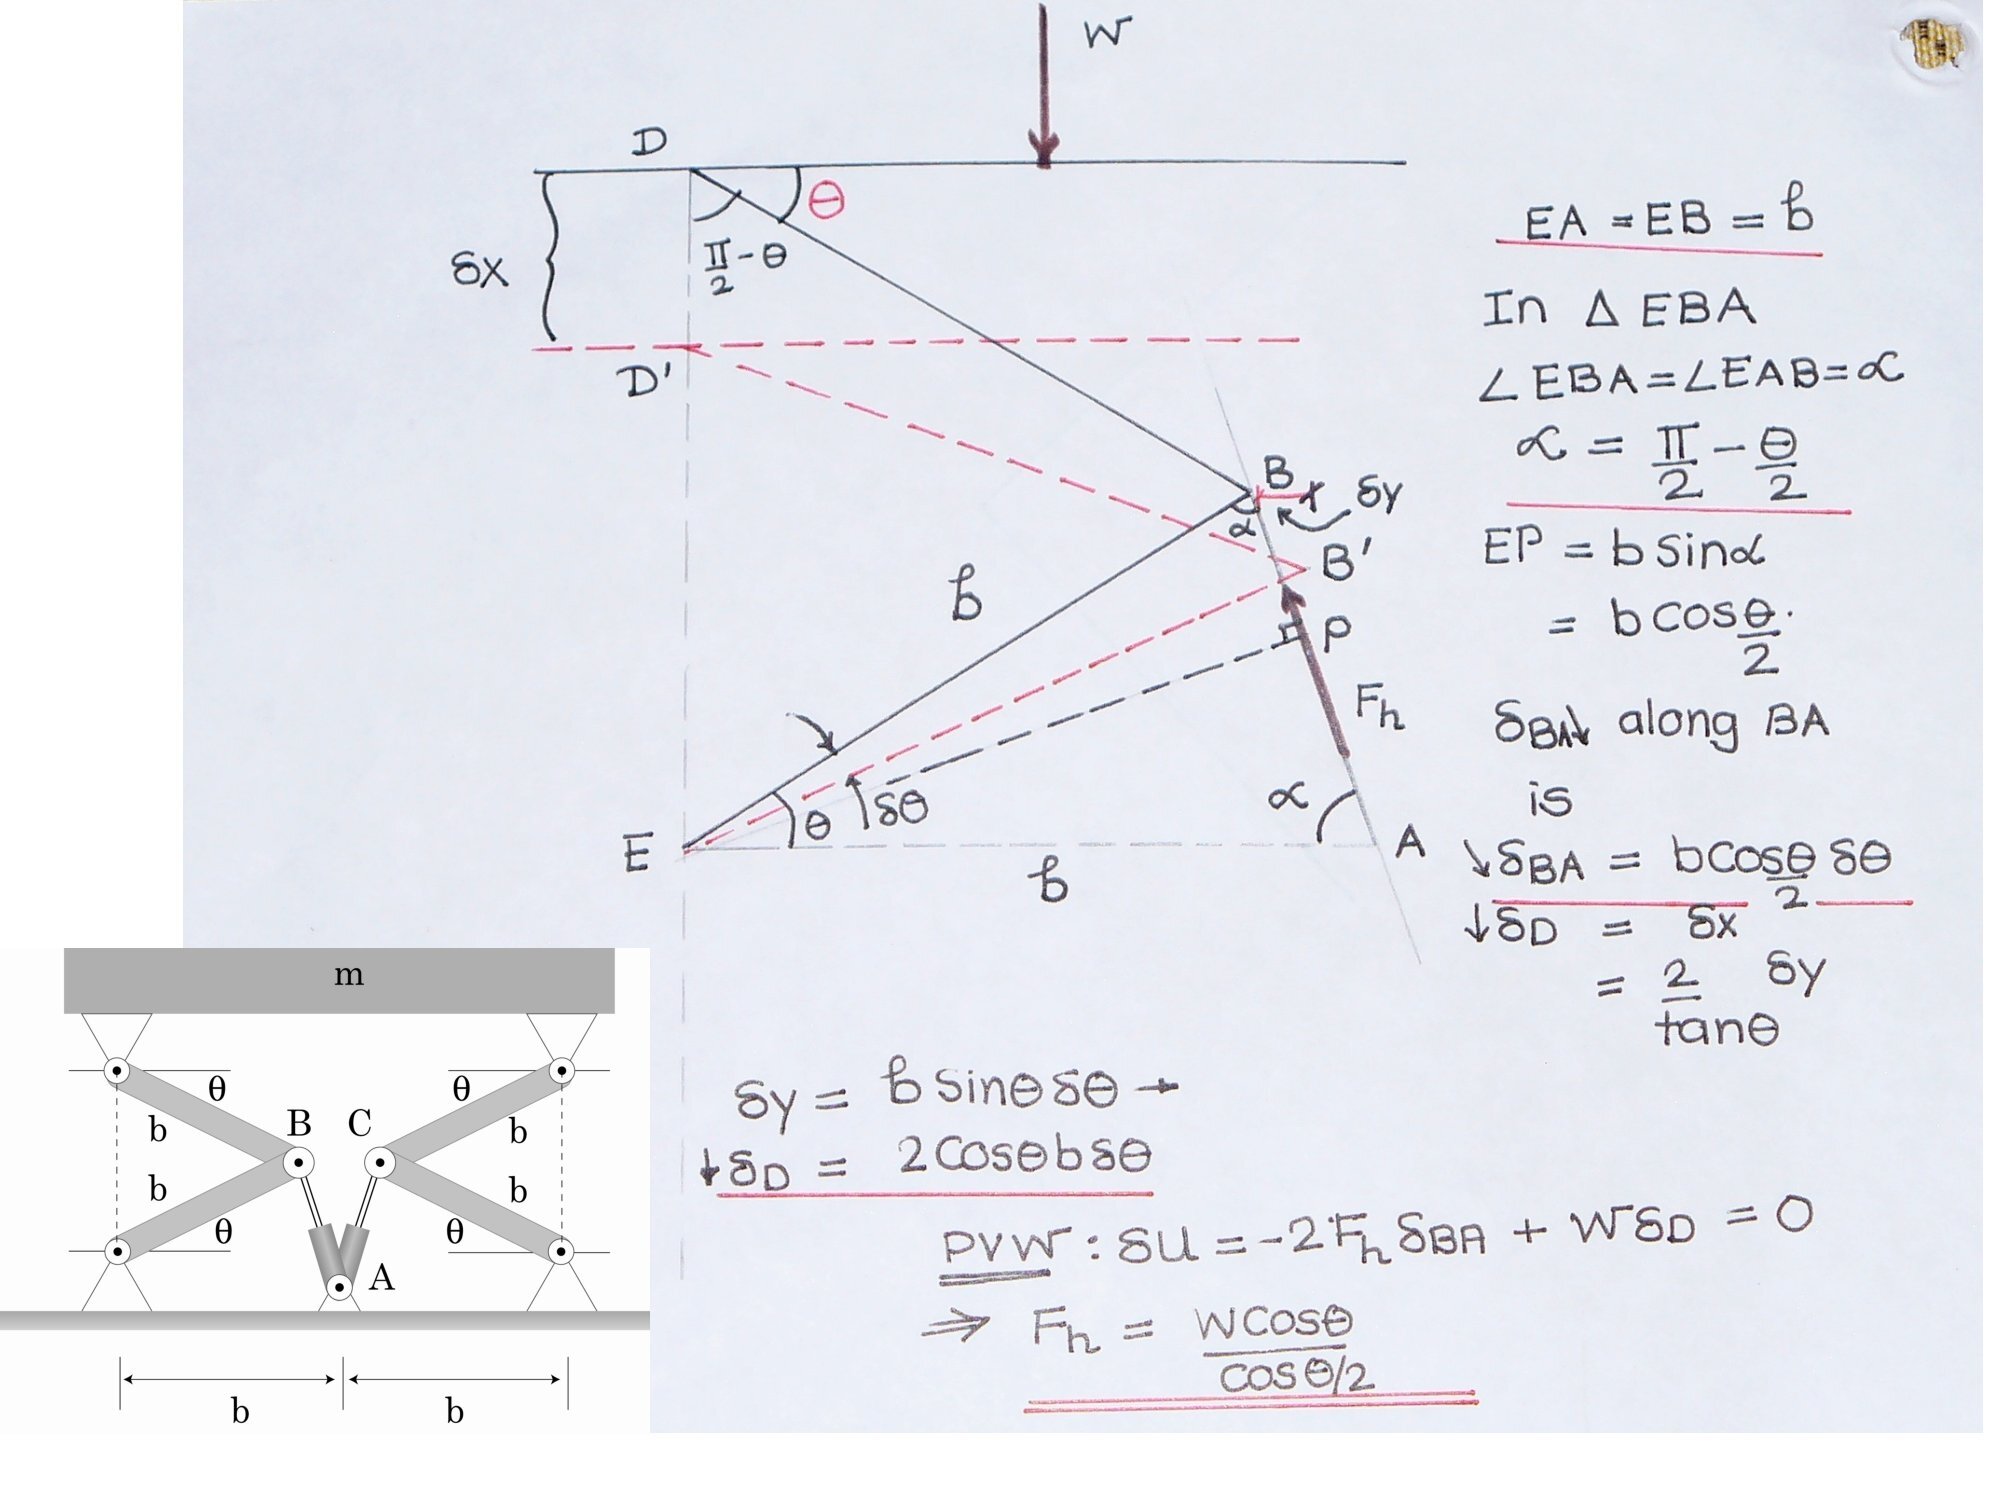 W
D
θ
π/2 - θ
δx
D'
B
δy
α
B'
b
P
F_h
θ
δθ
α
E
A
b
EA = EB = b
In Δ EBA
∠EBA = ∠EAB = α
α = π/2 - θ/2
EP = b sinα
= b cos θ/2.
δBA↓ along BA
is
↘δBA = b cos θ/2 δθ
↓δD = δx
= 2/tanθ δy
δy = b sinθ δθ →
↓δD = 2 cosθ b δθ
PVW : δU = -2F_h δBA + W δD = 0
⇒ F_h = W cosθ / cos θ/2
m
θ θ
b B C b
b b
θ θ
A
b b